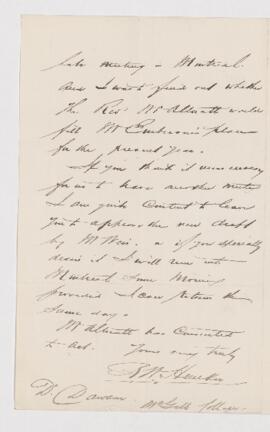 late meeting in Montreal
and I want to find out whether
the Rev. Mr Allnatt would
fill Mr Emberson's place
for the present year.
If you think it unnecessary
for us to have another meeting
I am quite content to leave
you to approve the new draft
by Mr Weir. or if you specially
desire it I will run into
Montreal some Morning
provided I can return the
same day.
Mr Allnatt has consented
to act.
Yours very truly
R W Heneker
Dr. Dawson
McGill College